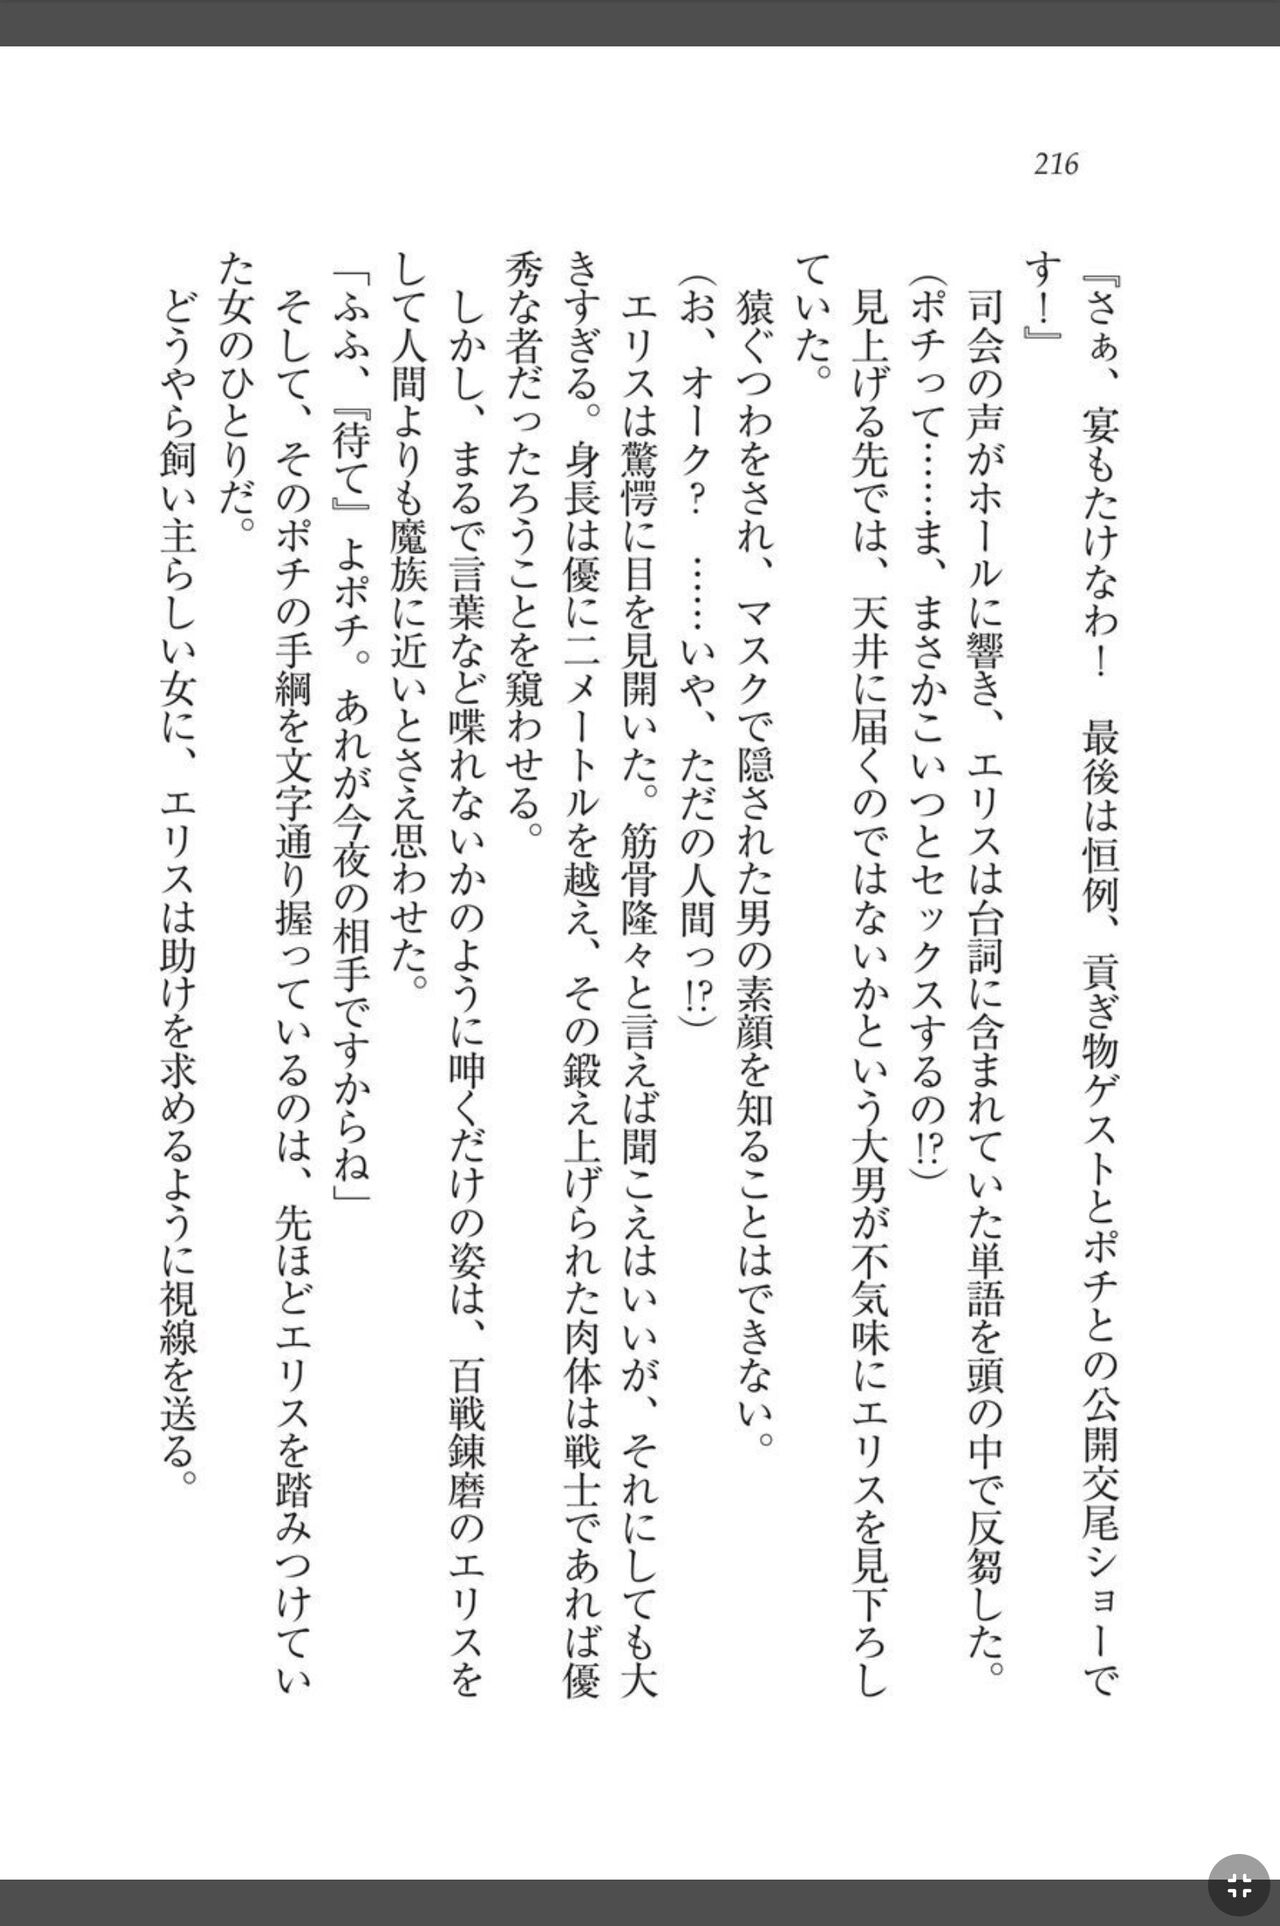 216
『さぁ、宴もたけなわ！　最後は恒例、貢ぎ物ゲストとポチとの公開交尾ショーで
す！』
司会の声がホールに響き、エリスは台詞に含まれていた単語を頭の中で反芻した。
（ポチって……ま、まさかこいつとセックスするの!?）
見上げる先では、天井に届くのではないかという大男が不気味にエリスを見下ろし
ていた。
猿ぐつわをされ、マスクで隠された男の素顔を知ることはできない。
（お、オーク？　……いや、ただの人間っ!?）
エリスは驚愕に目を見開いた。筋骨隆々と言えば聞こえはいいが、それにしても大
きすぎる。身長は優に二メートルを越え、その鍛え上げられた肉体は戦士であれば優
秀な者だったろうことを窺わせる。
しかし、まるで言葉など喋れないかのように呻くだけの姿は、百戦錬磨のエリスを
して人間よりも魔族に近いとさえ思わせた。
「ふふ、『待て』よポチ。あれが今夜の相手ですからね」
そして、そのポチの手綱を文字通り握っているのは、先ほどエリスを踏みつけてい
た女のひとりだ。
どうやら飼い主らしい女に、エリスは助けを求めるように視線を送る。